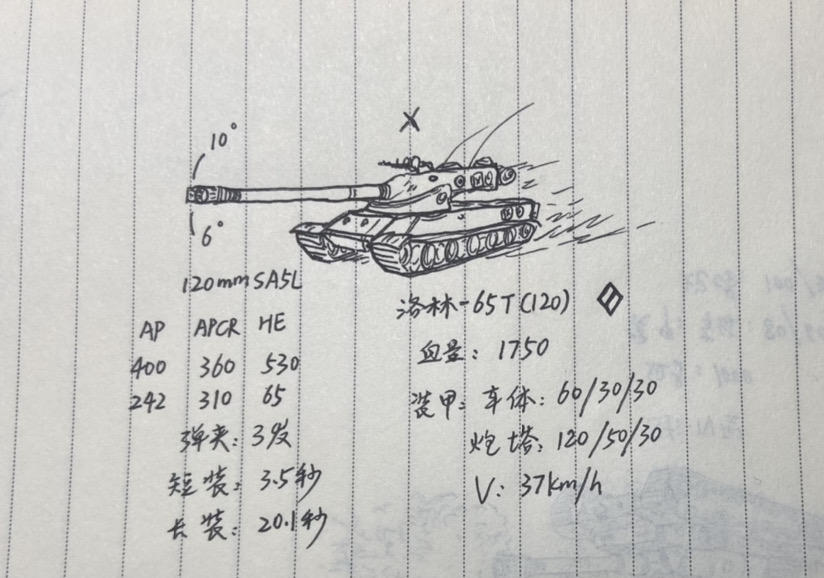 X
10°
6°
120mm SA5L
AP APCR HE
400 360 530
242 310 65
弹夹: 3发
短装: 3.5秒
长装: 20.1秒
洛林-65T(120)
血量: 1750
装甲: 车体: 60/30/30
炮塔: 120/50/30
V: 37km/h